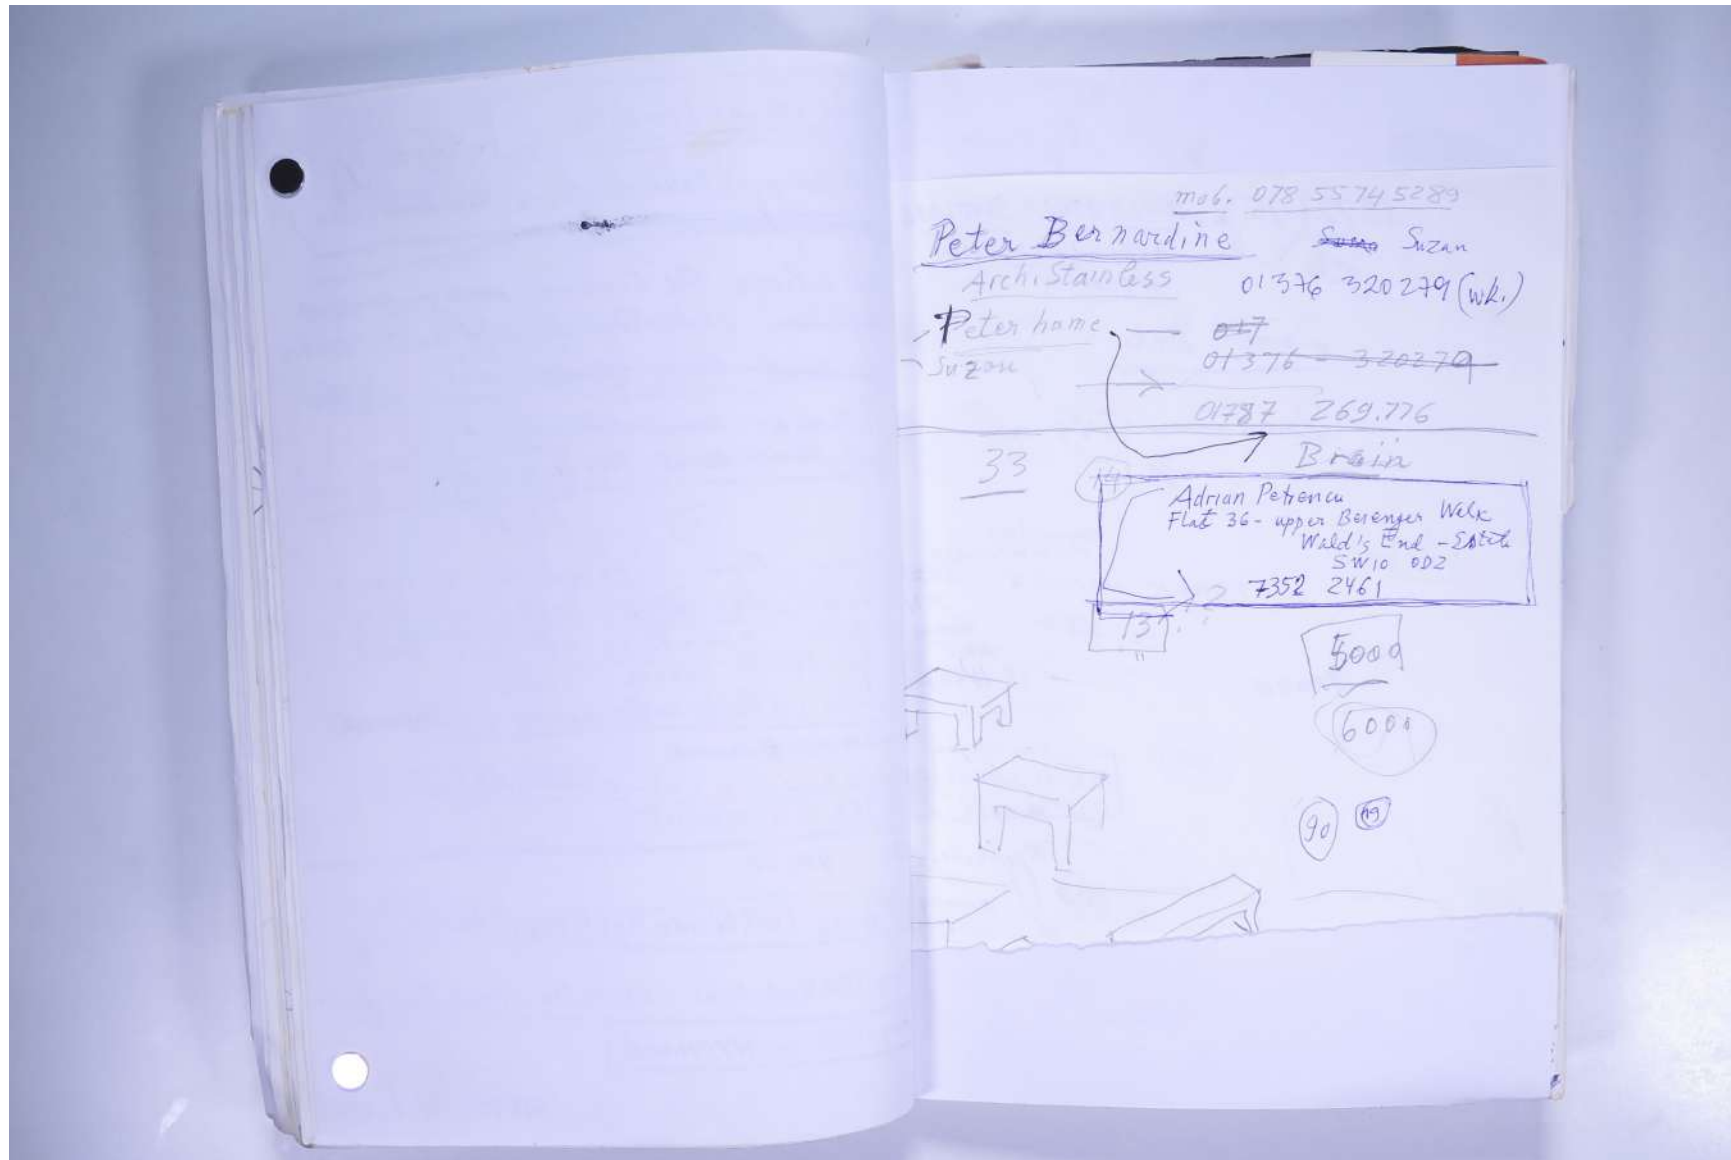 mob. 078 55745289
Peter Bernardine Suzan
Archi.Stainless 01376 320279 (wk.)
Peter home — 017
Suzan 01376 - 320279
01787 269.776
33 14 Brain
Adrian Petrencu
Flat 36 - upper Berenger Walk
Wald's End - Estate
SW10 0DZ
7352 2461
13 ? ?
5000
6000
90